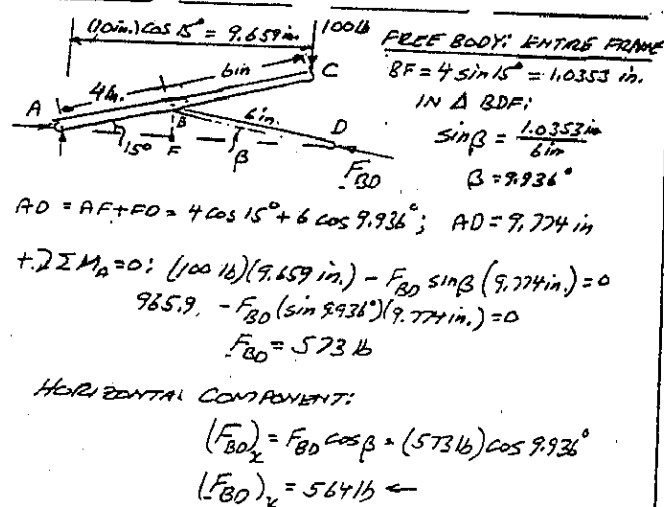 (10in.) cos 15° = 9.659 in.
100 lb
FREE BODY: ENTIRE FRAME
BF = 4 sin 15° = 1.0353 in.
IN Δ BDF:
sin β = 1.0353 in / 6 in
β = 9.936°
4 in.
6 in
C
A
B
6 in.
D
15°
F
β
F_BD
AD = AF + FD = 4 cos 15° + 6 cos 9.936°; AD = 9.774 in
+⤵ Σ M_A = 0: (100 lb)(9.659 in.) - F_BD sin β (9.774 in.) = 0
965.9 - F_BD (sin 9.936°)(9.774 in.) = 0
F_BD = 573 lb
HORIZONTAL COMPONENT:
(F_BD)_x = F_BD cos β = (573 lb) cos 9.936°
(F_BD)_x = 564 lb ←